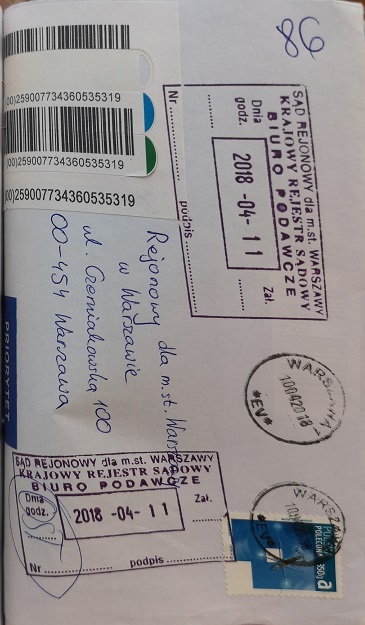 86
(00)259007734360535319
(00)259007734360535319
(00)259007734360535319
SĄD REJONOWY dla m.st. WARSZAWY
KRAJOWY REJESTR SĄDOWY
BIURO PODAWCZE
Dnia
godz.
2018 -04- 11
Zał.
Nr
podpis
Rejonowy dla m.st. Warszawy
w Warszawie
ul. Czerniakowska 100
00-454 Warszawa
PRIORYTET
WARSZAWA
10042018
*EV*
SĄD REJONOWY dla m.st. WARSZAWY
KRAJOWY REJESTR SĄDOWY
BIURO PODAWCZE
Dnia
godz.
2018 -04- 11
Zał.
Nr
podpis
WARSZAWA
*EV*
POLECONY
350g
a